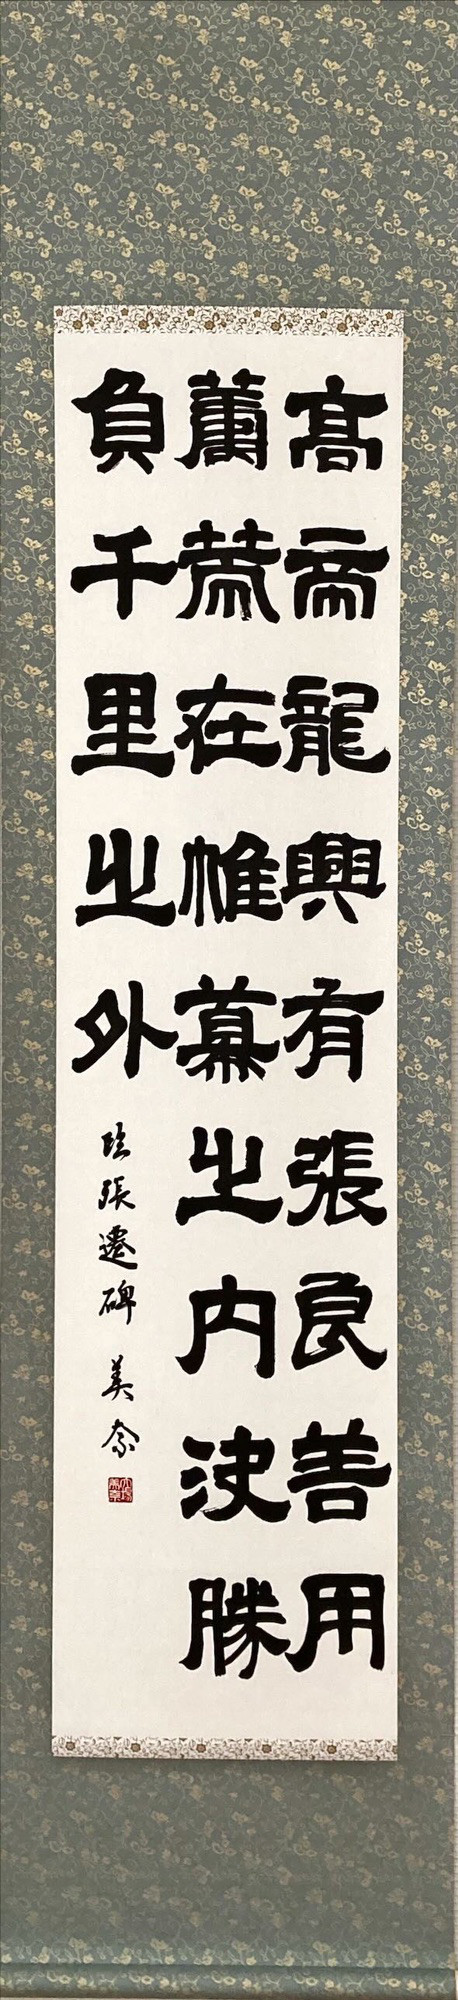 高帝龍興有張良善用
籌策在帷幕之内決勝
負千里之外
臨張遷碑 美奈